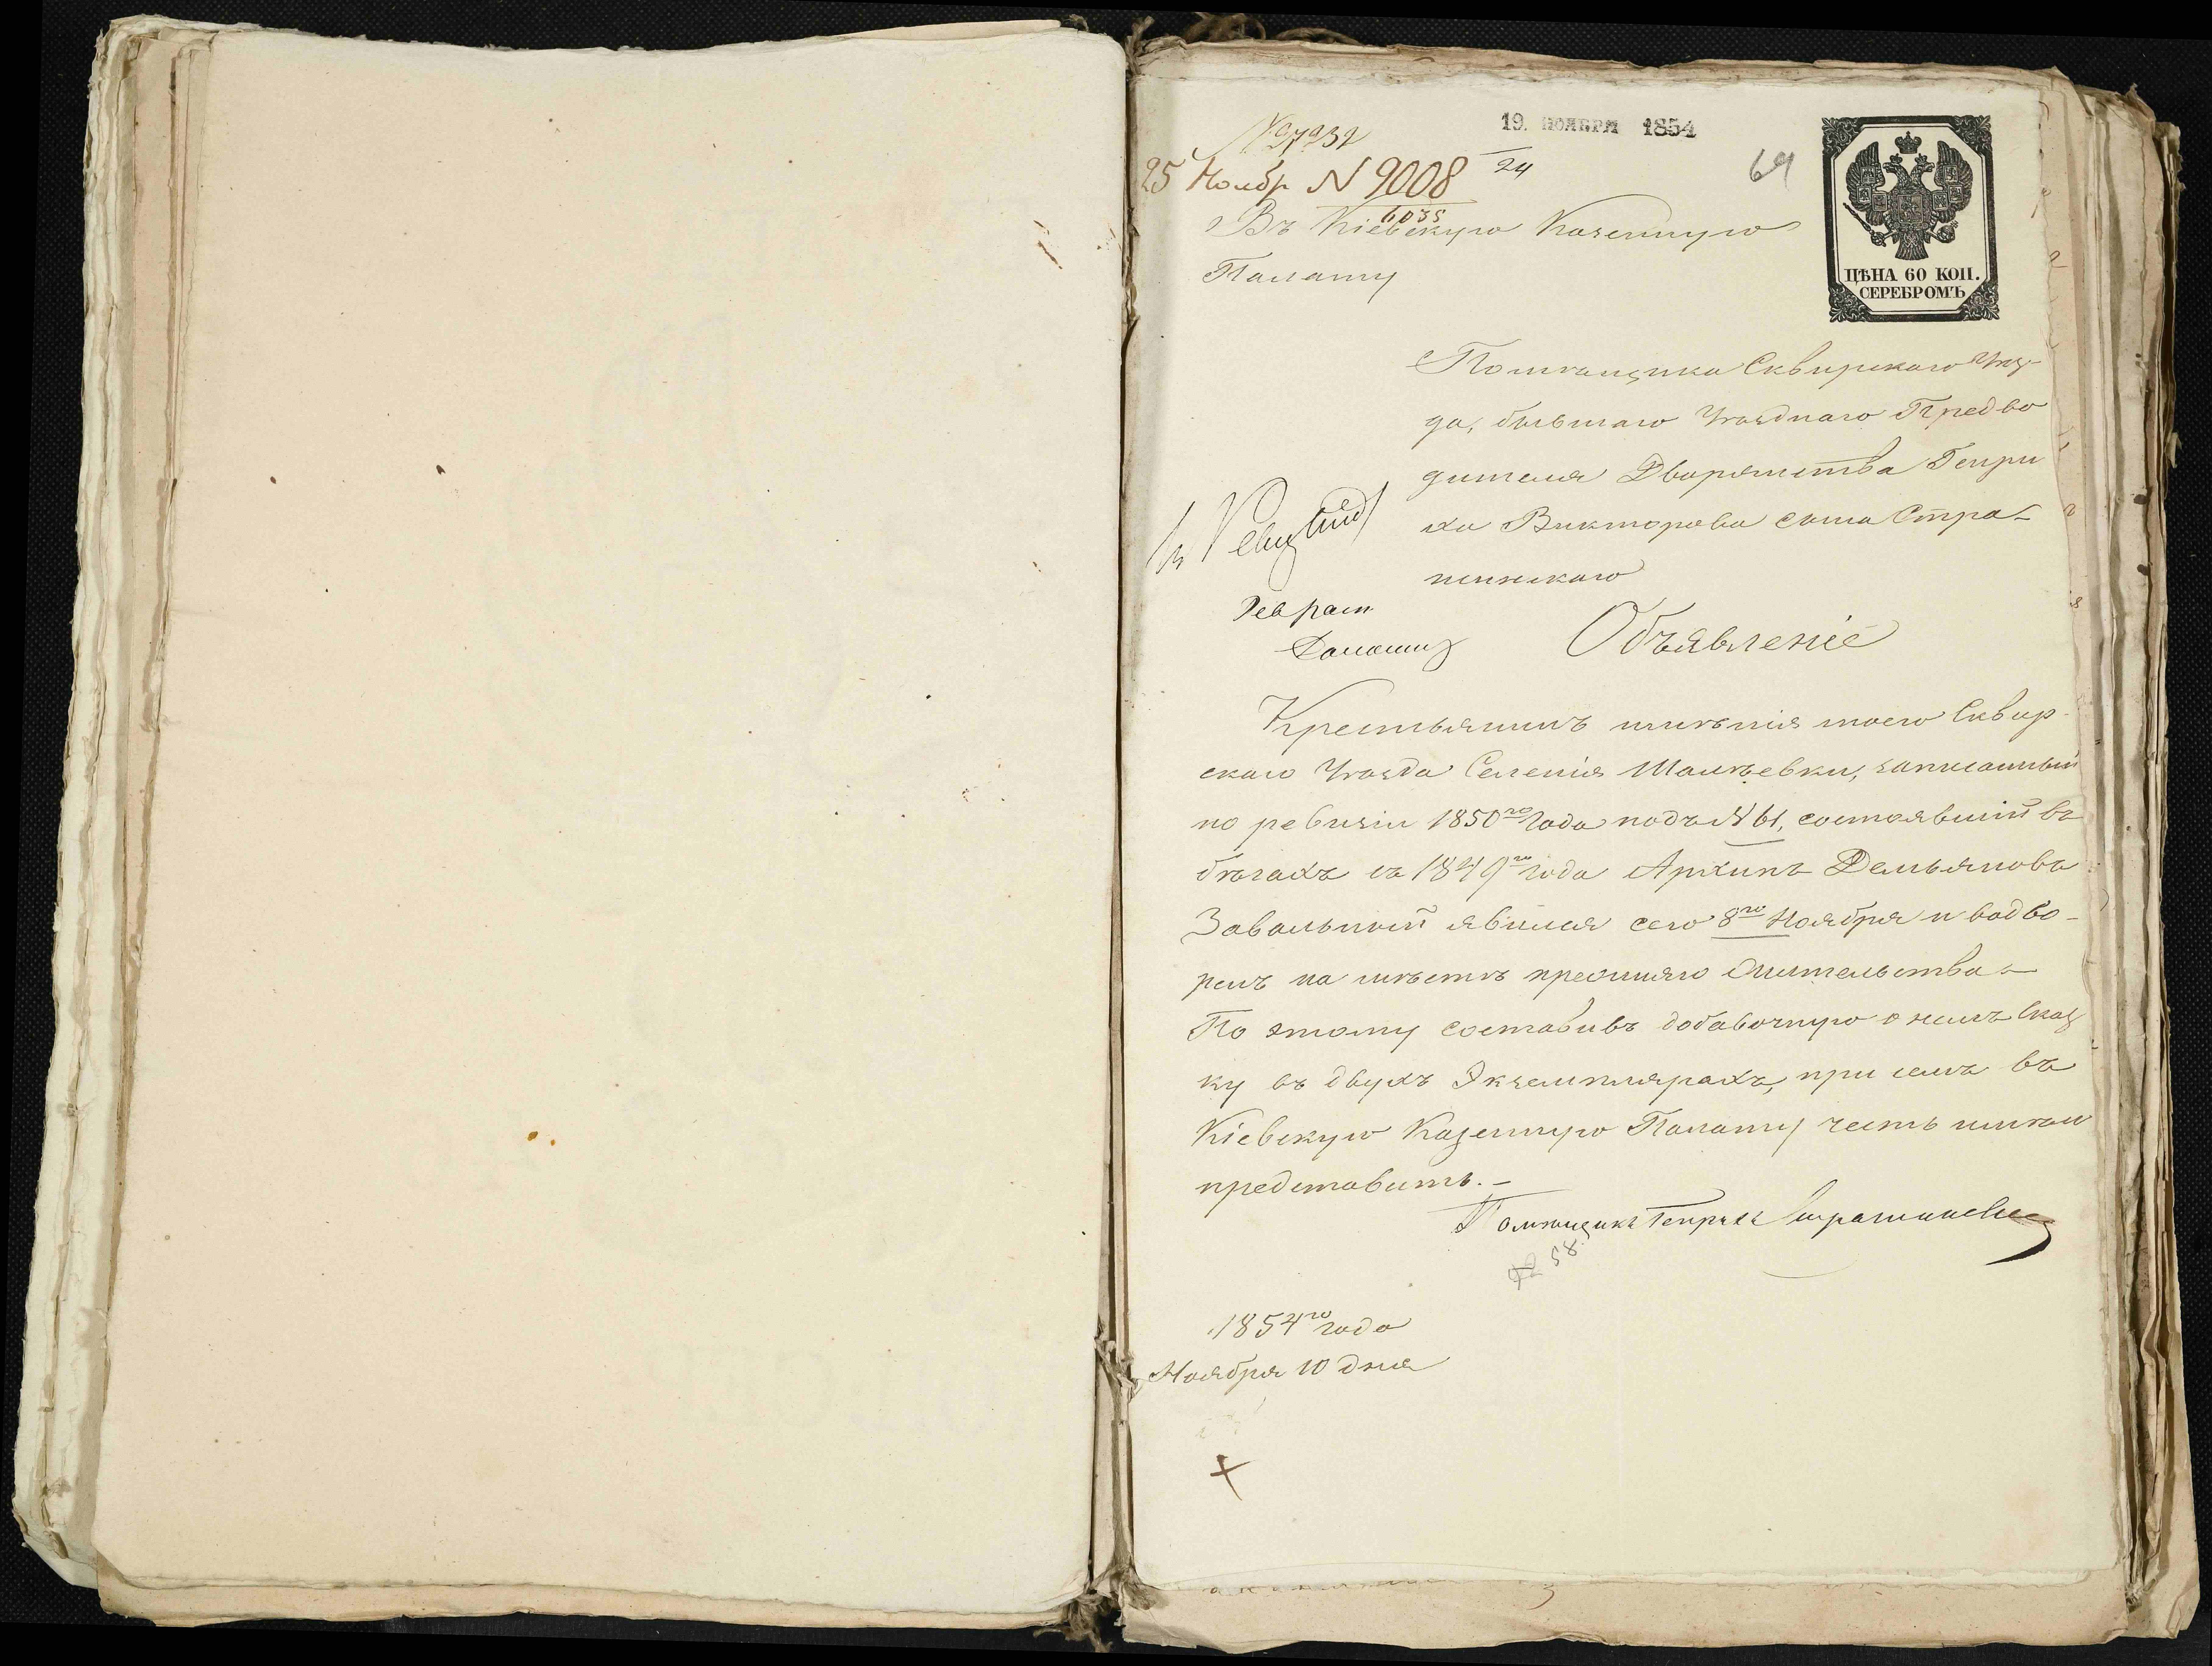 19. НОЯБРЯ 1854
24
69
25 Ноябр N 9008
6035
Въ Кіевскую Казенную
Палату
ЦѢНА 60 КОП.
СЕРЕБРОМЪ
Помѣщика Сквирскаго Уѣз-
да, бывшаго Уѣзднаго Предво
дителя Дворянства Генри
ха Викторова сына Стра-
шинскаго
Объявленіе
Крестьянинъ имѣнія моего Сквир-
скаго Уѣзда Селенія Шалѣевки, записанный
по ревизіи 1850го Года подъ N 61, состоявшій въ
бѣгахъ съ 1849го года Архипъ Демьяновъ
Завальный явился сего 8го Ноября и водво-
ренъ на мѣстѣ прежняго жительства
По этому составивъ добавочную о немъ Сказ
ку въ двухъ Экземплярахъ, при семъ въ
Кіевскую Казенную Палату честь имѣю
представить.-
Помѣщикъ Генрихъ Страшинскій
58
1854го года
Ноября 10 дня